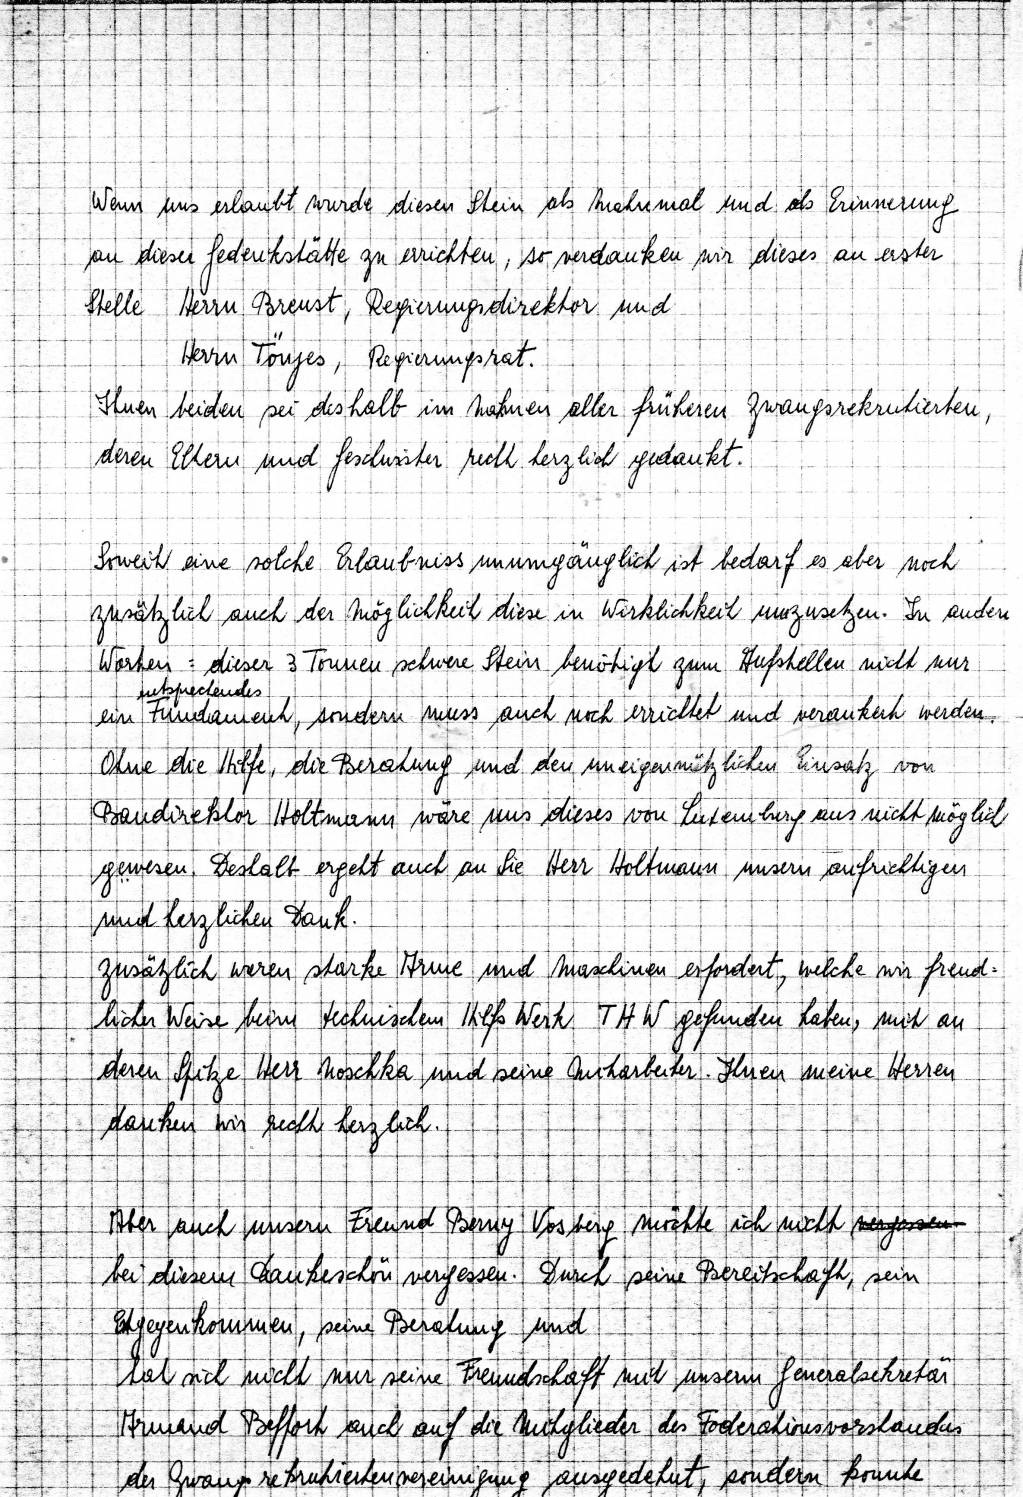 Wenn uns erlaubt wurde diesen Stein als Mahnmal und als Erinnerung
an dieser Gedenkstätte zu errichten, so verdanken wir dieses an erster
Stelle Herrn Breust, Regierungsdirektor und
Herrn Tönjes, Regierungsrat.
Ihnen beiden sei deshalb im Nahmen aller früheren Zwangsrekrutierten,
deren Eltern und Geschwister recht herzlich gedankt.
Soweit eine solche Erlaubniss unumgänglich ist bedarf es aber noch
zusätzlich auch der Möglichkeit diese in Wirklichkeit umzusetzen. In andern
Worten : dieser 3 Tonnen schwere Stein benötigt zum Aufstellen nicht nur
entsprechendes
ein Fundament, sondern muss auch noch errichtet und verankert werden.
Ohne die Hilfe, die Beratung und den uneigennützlichen Einsatz von
Baudirektor Holtmann wäre uns dieses von Luxemburg aus nicht möglich
gewesen. Deshalb ergeht auch an Sie Herr Holtmann unsern aufrichtigen
und herzlichen Dank.
Zusätzlich waren starke Arme und Maschinen erfordert, welche wir freund=
licher Weise beim technischem Hilfs Werk THW gefunden haben, mit an
deren Spitze Herr Noschka und seine Mitarbeiter. Ihnen meine Herren
danken wir recht herzlich.
Aber auch unsern Freund Berny Vosberg möchte ich nicht vergessen
bei diesem Dankeschön vergessen. Durch seine Bereitschaft, sein
Etgegenkommen, seine Beratung und
hat sich nicht nur seine Freundschaft mit unserm Generalsekretär
Armand Beffort auch auf die Mitglieder des Foderationsvorstandes
der Zwangsrekrutiertenvereinigung ausgedehnt, sondern konnte